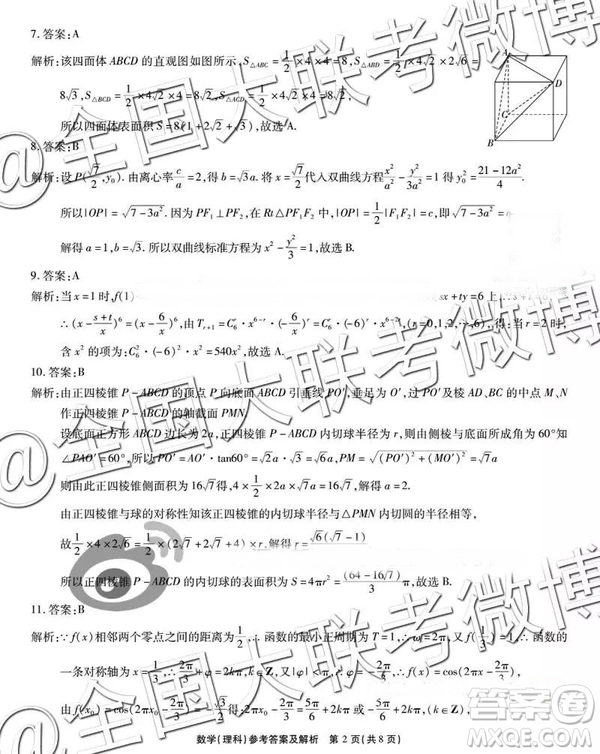 7. 答案:A
解析:该四面体ABCD的直观图如图所示,S△ABC=1/2×4×4=8,S△ABD=1/2×4√2×2√6=
8√3,S△BCD=1/2×4×4√2=8√2,S△ACD=1/2×4√2×4=8√2,
所以四面体表面积S=8(1+2√2+√3),故选A.
A
D
C
B
8. 答案:B
解析:设P(√7/2,y₀).由离心率c/a=2,得b=√3a.将x=√7/2代入双曲线方程x²/a²-y²/b²=1得y₀²=(21-12a²)/4.
所以|OP|=√(7-3a²).因为PF₁⊥PF₂,在Rt△PF₁F₂中,|OP|=1/2|F₁F₂|=c,即√(7-3a²)=
解得a=1,b=√3.所以双曲线标准方程为x²-y²/3=1,故选B.
9. 答案:A
解析:当x=1时,f(1)
sx+ty=6上
∴(x-(s+t)/x)⁶=(x-6/x)⁶,由Tᵣ₊₁=C₆ʳ·x⁶⁻ʳ·(-6/x)ʳ=C₆ʳ·(-6)ʳ·x⁶⁻²ʳ,(r=0,1,2,…,6),令r=2时,
含x²的项为:C₆²·(-6)²x²=540x²,故选A.
10. 答案:B
解析:由正四棱锥P-ABCD的顶点P向底面ABCD引垂线PO′,垂足为O′,过PO′及棱AD、BC的中点M、N
作正四棱锥P-ABCD的轴截面PMN.
设底面正方形ABCD边长为2a,正四棱锥P-ABCD内切球半径为r,则由侧棱与底面的夹角为60°知
∠PAO′=60°,所以PO′=AO′·tan60°=√2a·√3=√6a,PM=√((PO′)²+(MO′)²)=√7a
则由此正四棱锥侧面积为16√7得,4×1/2×2a×√7a=16√7,解得a=2.
由正四棱锥与球的对称性知该正四棱锥的内切球半径与△PMN内切圆的半径相等,
故1/2×4×2√6=1/2(2√7+2√7+4)×r,解得r=√6(√7-1)/3
所以正四棱锥P-ABCD的内切球的表面积为S=4πr²=(64-16√7)/3π,故选B.
11. 答案:B
解析:∵f(x)相邻两个零点之间的距离为1/2,∴函数的最小正周期为T=1,∴ω=2π,又f(1/3)=
一条对称轴为x=1/3,∴2π/3+φ=2kπ,k∈Z,又|φ|<π,∴φ=-2π/3,∴f(x)=cos(2πx-2π/3),
数学(理科)参考答案及解析 第2页(共8页)
@全国大联考微博
@全国大联考微博